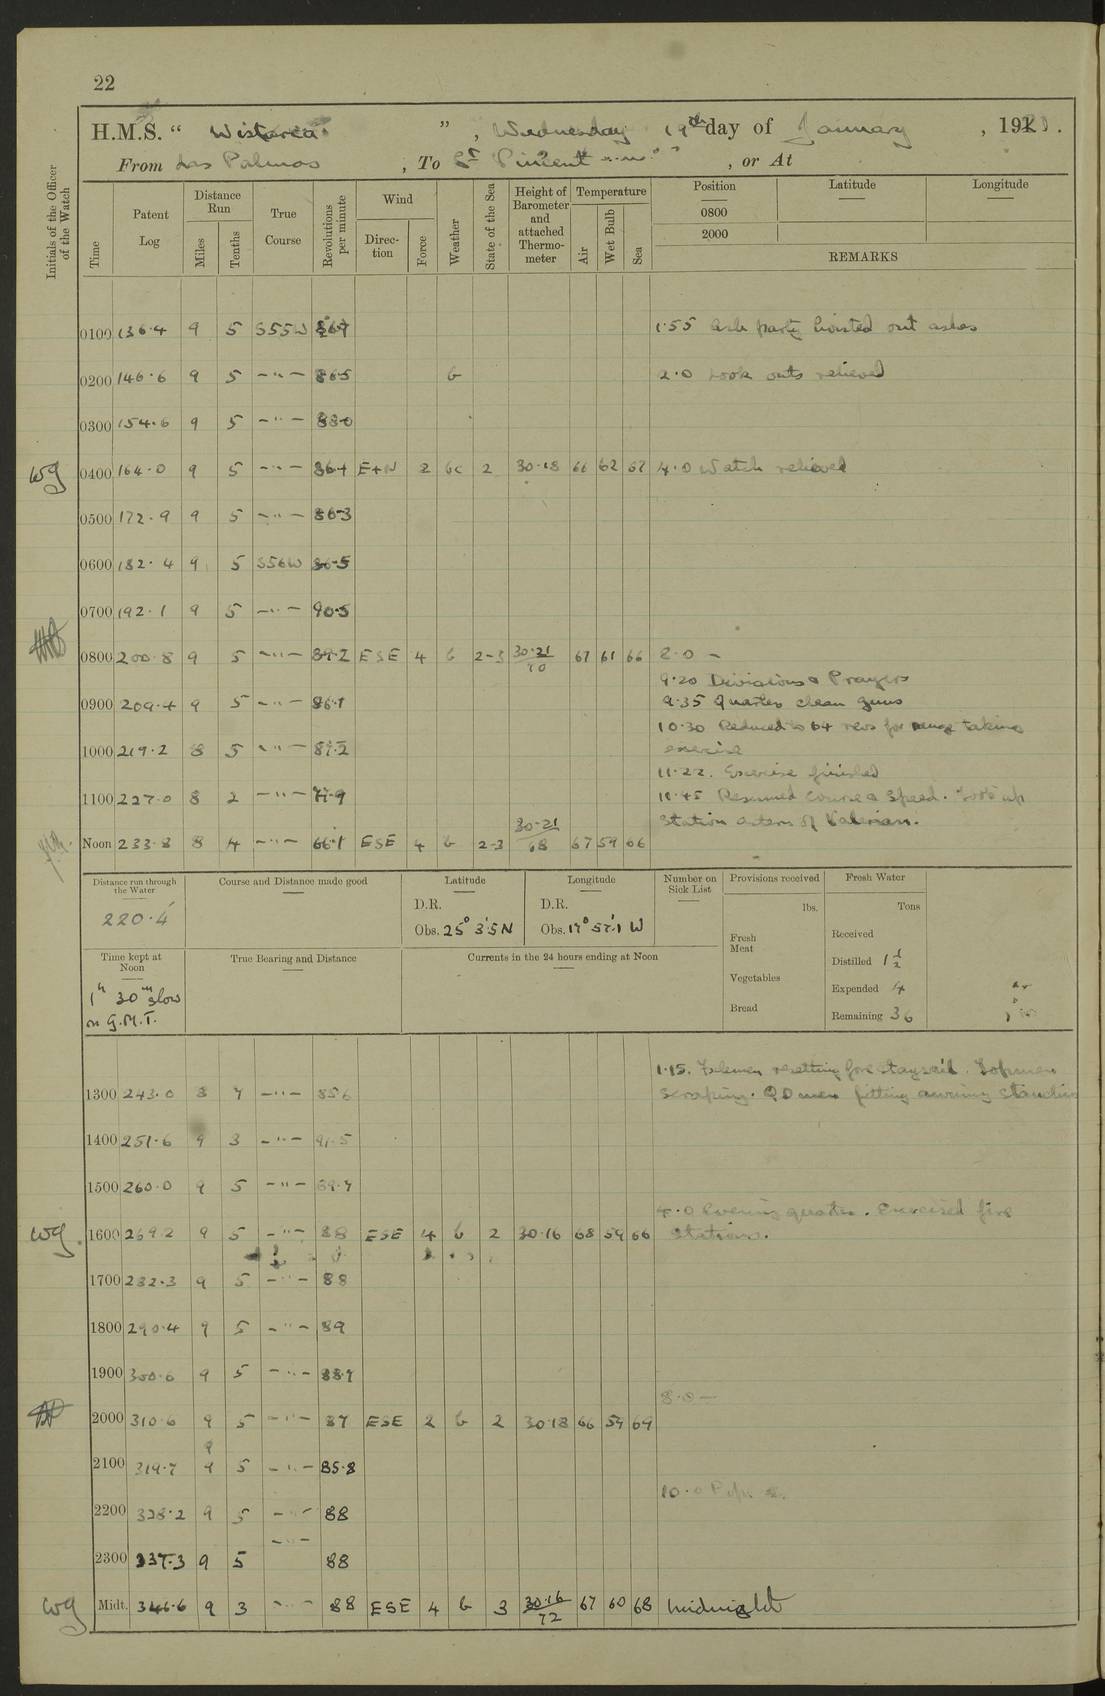 22
H.M.S. " Wistaria " , Wednesday 19th day of January , 1921.
From Las Palmas , To St Vincent , or At
Initials of the Officer of the Watch
Time
Patent Log
Distance Run
Miles
Tenths
True Course
Revolutions per minute
Wind
Direction
Force
Weather
State of the Sea
Height of Barometer and attached Thermometer
Temperature
Air
Wet Bulb
Sea
Position
0800
2000
Latitude
Longitude
REMARKS
0100 136.4 9 5 S55W 1.55 Ash party hoisted out ashes
0200 146.6 9 5 -"- 86.5 b 2.0 Look outs relieved
0300 154.6 9 5 -"- 88.0
wg 0400 164.0 9 5 -"- 2 bc 2 30.18 66 62 67 4.0 Watch relieved
0500 172.9 9 5 -"- 86.3
0600 182.4 9 5 S56W 86.5
0700 192.1 9 5 -"- 90.5
0800 200.8 9 5 -"- 89.2 ESE 4 b 2-3 30.21/70 67 61 66 8.0 -
9.20 Divisions & Prayers
0900 209.4 9 5 -"- 86.1 9.35 Quarters clean guns
10.30 Reduced to 64 revs for range taking
1000 219.2 8 5 -"- 87.2 exercise
11.22. Exercise finished
1100 227.0 8 2 -"- 77.9 11.45 Resumed course & speed. Took up
station astern of Valerian.
Noon 233.8 8 4 -"- 66.1 ESE 4 b 2-3 30.21/68 67 59 66
Distance run through the Water
220.4
Course and Distance made good
Latitude
D.R.
Obs. 25° 3'.5 N
Longitude
D.R.
Obs. 17° 57'.1 W
Number on Sick List
Provisions received
lbs.
Fresh Meat
Vegetables
Bread
Fresh Water
Tons
Received
Distilled 1 1/2
Expended 4
Remaining 36
Time kept at Noon
1h 30m slow
on G.M.T.
True Bearing and Distance
Currents in the 24 hours ending at Noon
1.15. Fxlemen resetting fore staysail. Topmen
1300 243.0 8 7 -"- 85.6 scraping. QD men fitting awning stanchions
1400 251.6 9 3 -"- 91.5
1500 260.0 9 5 -"- 89.7
4.0 Evening quarters. Exercised fire
wg. 1600 269.2 9 5 -"- 88 ESE 4 b 2 30.16 68 59 66 stations.
1700 282.3 9 5 -"- 88
1800 290.4 9 5 -"- 89
1900 300.6 9 5 -"- 88.7
8.0 -
2000 310.6 9 5 -"- 87 ESE 2 b 2 30.18 66 59 69
2100 319.7 9 5 -"- 85.8
10.0
2200 328.2 9 5 -"- 88
2300 337.3 9 5 -"- 88
wg Midt. 346.6 9 3 -"- 88 ESE 4 b 3 30.16/72 67 60 68 Midnight